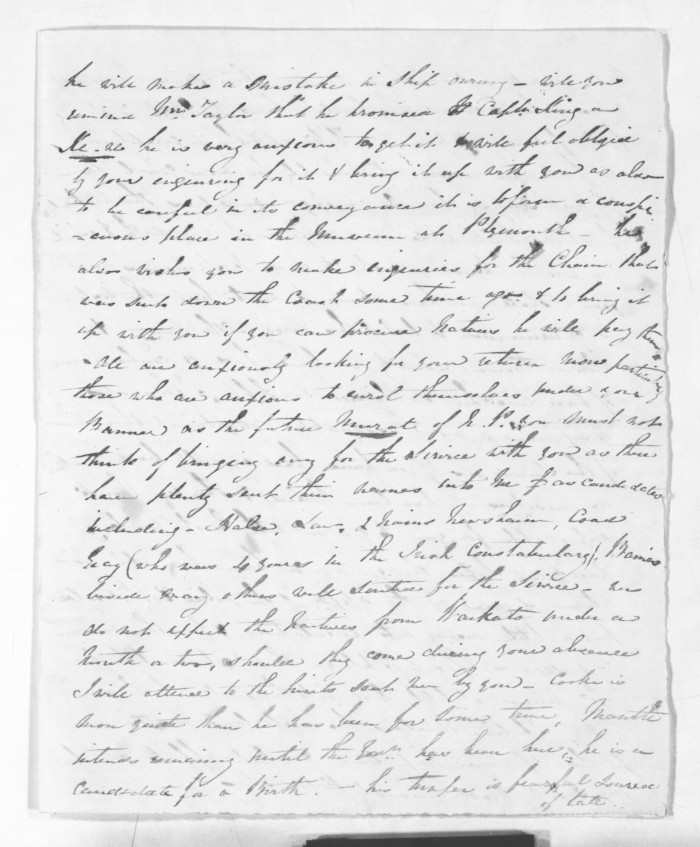 he will make a mistake in Ship owning – will you
remind Mr Taylor that he promised Captn King a
he is very anxious to get it & will feel obliged
by your enquiring for it & bring it up with you as also
to be careful in its conveyance it is to form a conspi
-cuous place in the Museum at Plymouth – he
also wishes you to make enquiries for the Chain that
was sent down the Coast some time ago & to bring it
up with you if you can procure Natives he will pay them
– We are anxiously looking for your return more particularly
those who are anxious to enrol themselves under your
Banner as the future Murat of N.P. you must not
think of bringing any for the Service with you as there
have plenty sent their names into me as candidates
including – Halse, Law, 2 Newsham,
(who was 4 years in the Irish Constabulary)
beside many others well for the Service – we
do not expect the Natives from Waikato under a
Month or two, should they come during your absence
I will attend to the hints sent me by you – Cooke is
more quiet than he has been for some time,
intends remaining until the Govr has been here, he is a
candidate for a Birth. – his temper is soured
of late.